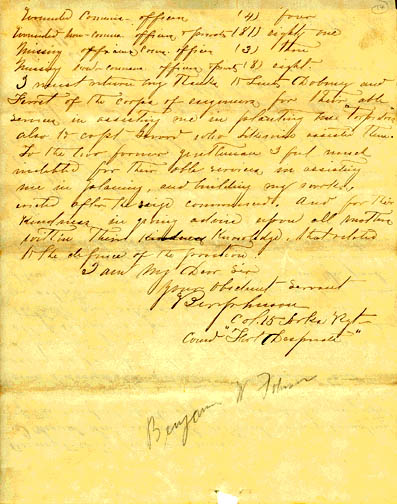 Wounded Commis. officers (4) four
Wounded non-comms. officers & privates (81) eighty one
Missing officers Coms. officer (3) three
Missing non-comms. officers & privts (8) eight
I must return my thanks to Lieuts Dabney and
of the corps of engineers for their able
services in assisting me in planting
also to Capt Girard, who likewise assisted them.
To the two former gentlemen I feel much
indebted for their able services in assisting
me in planning, and building my works,
erected after the seige commenced. And for their
kindness in giving advice upon all matters
within their kindness knowledge, that related
to the defence of the position
I am My Dear Sir
Your Obedient Servant
Ben Johnson
Col. 15 Arks Regt
Comd "Fort Desperate"
Benjamin W Johnson